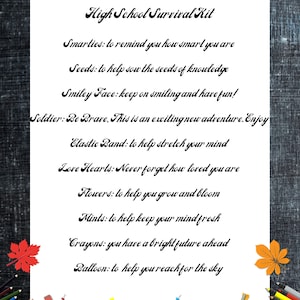 High School Survival Kit
Smarties: to remind you how smart you are
Seeds: to help sow the seeds of knowledge
Smiley Face: keep on smiling and have fun!
Soldier: Be Brave, This is an exciting new adventure. Enjoy
Elastic Band: to help stretch your mind
Love Hearts: Never forget how loved you are
Flowers: to help you grow and bloom
Mints: to help keep your mind fresh
Crayons: you have a bright future ahead
Balloon: to help you reach for the sky